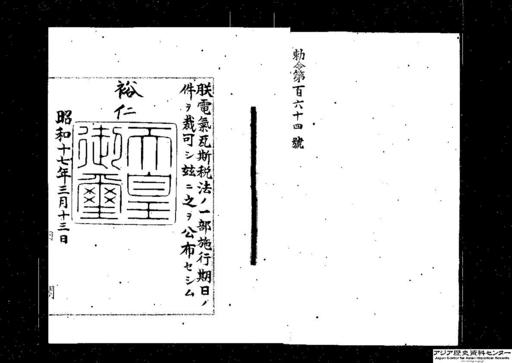 勅令第百六十四號
朕電氣瓦斯税法ノ一部施行期日ノ
件ヲ裁可シ玆ニ之ヲ公布セシム
裕仁
天皇御璽
昭和十七年三月十三日
アジア歴史資料センター
Japan Center for Asian Historical Records